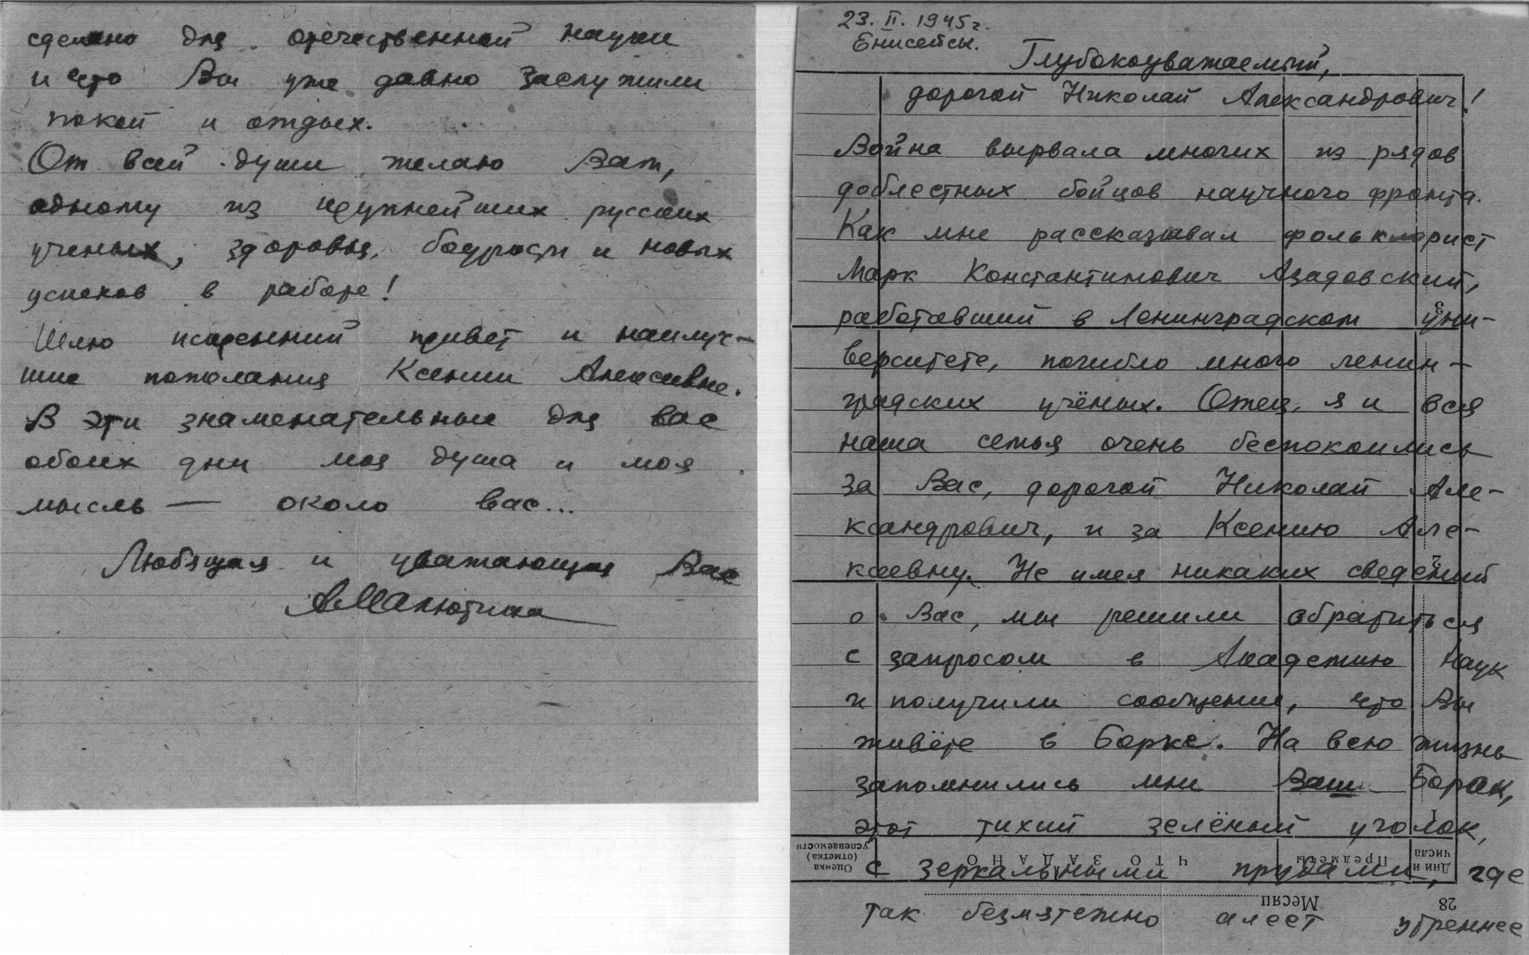 сделано для отечественной науки
и что Вы уже давно заслужили
покой и отдых.
От всей души желаю Вам,
одному из крупнейших русских
ученых, здоровья, бодрости и новых
успехов в работе!
Шлю искренний привет и наилуч-
шие пожелания Ксении Алексеевне.
В эти знаменательные для вас
обоих дни моя душа и моя
мысль — около вас...
Любящая и уважающая Вас
АМалютина
23. II. 1945 г.
Енисейск.
Глубокоуважаемый,
дорогой Николай Александрович!
Война вырвала многих из рядов
доблестных бойцов научного фронта.
Как мне рассказывал фольклорист
Марк Константинович Азадовский,
работавший в Ленинградском уни-
верситете, погибло много ленин-
градских учёных. Отец, я и вся
наша семья очень беспокоились
за Вас, дорогой Николай Але-
ксандрович, и за Ксению Але-
ксеевну. Не имея никаких сведений
о Вас, мы решили обратиться
с запросом в Академию Наук
и получили сообщение, что Вы
живёте в Борке. На всю жизнь
запомнились мне Ваш Борок,
этот тихий зелёный уголок,
с зеркальными прудами, где
так безмятежно алеет утреннее
Дни и числа
Предметы
ЧТО ЗАДАНО
Оценка (отметка) успеваемости
Месяц
28